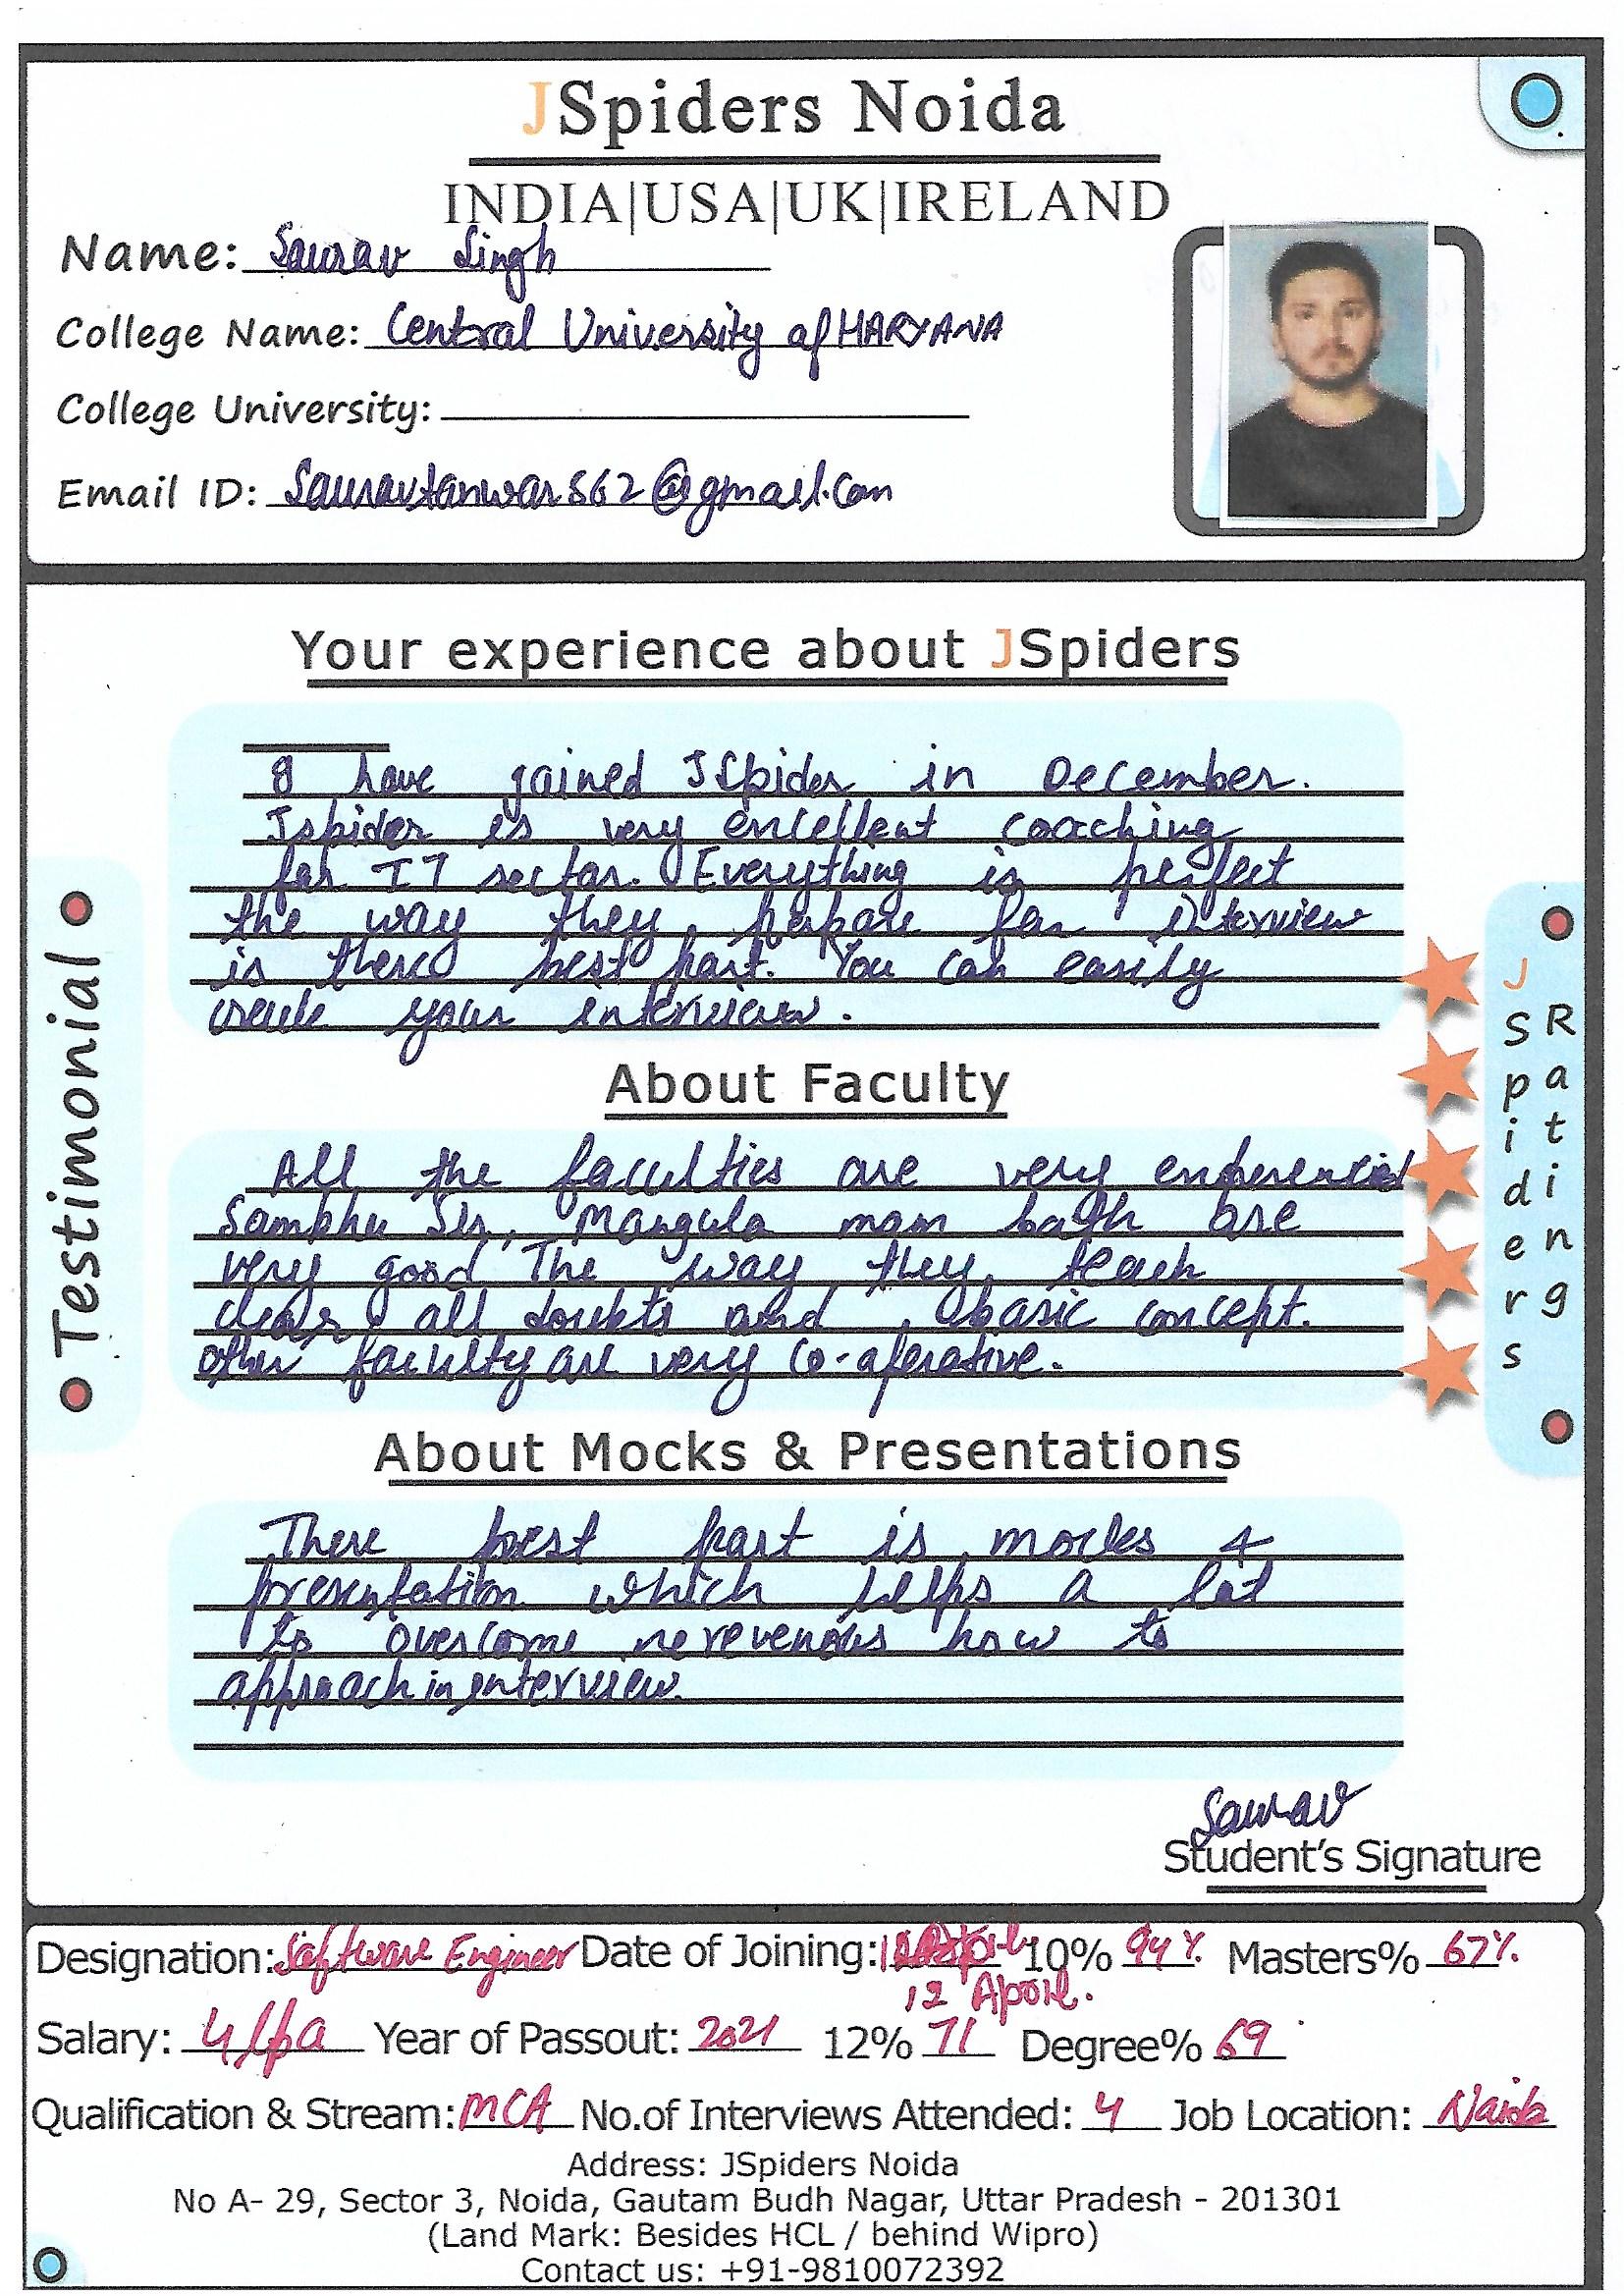 JSpiders Noida
INDIA|USA|UK|IRELAND
Name: Saurav Singh
College Name: Central University of HARYANA
College University:
Email ID: Sauravtanwar862@gmail.com
Your experience about JSpiders
I have gained JSpider in December.
Jspider is very encellent coaching
for IT sector. Everything is perfect
the way they prepare for interview
is there best part. You can easily
your interview.
About Faculty
All the faculties are very
Sambhu Sir, Mangala mam both are
very good The way they teach
clear all doubts and basic concept.
other faculty are very co-operative.
About Mocks & Presentations
There best part is mocks &
presentation which helps a lot
to overcome how to
approach in interview.
Saurav
Student's Signature
Testimonial
JSpiders
Rating
Designation: Software Engineer Date of Joining: 12 April. 10% 94% Masters% 67%
Salary: 4 lpa Year of Passout: 2021 12% 71 Degree% 69
Qualification & Stream: MCA No.of Interviews Attended: 4 Job Location: Noida
Address: JSpiders Noida
No A- 29, Sector 3, Noida, Gautam Budh Nagar, Uttar Pradesh - 201301
(Land Mark: Besides HCL / behind Wipro)
Contact us: +91-9810072392